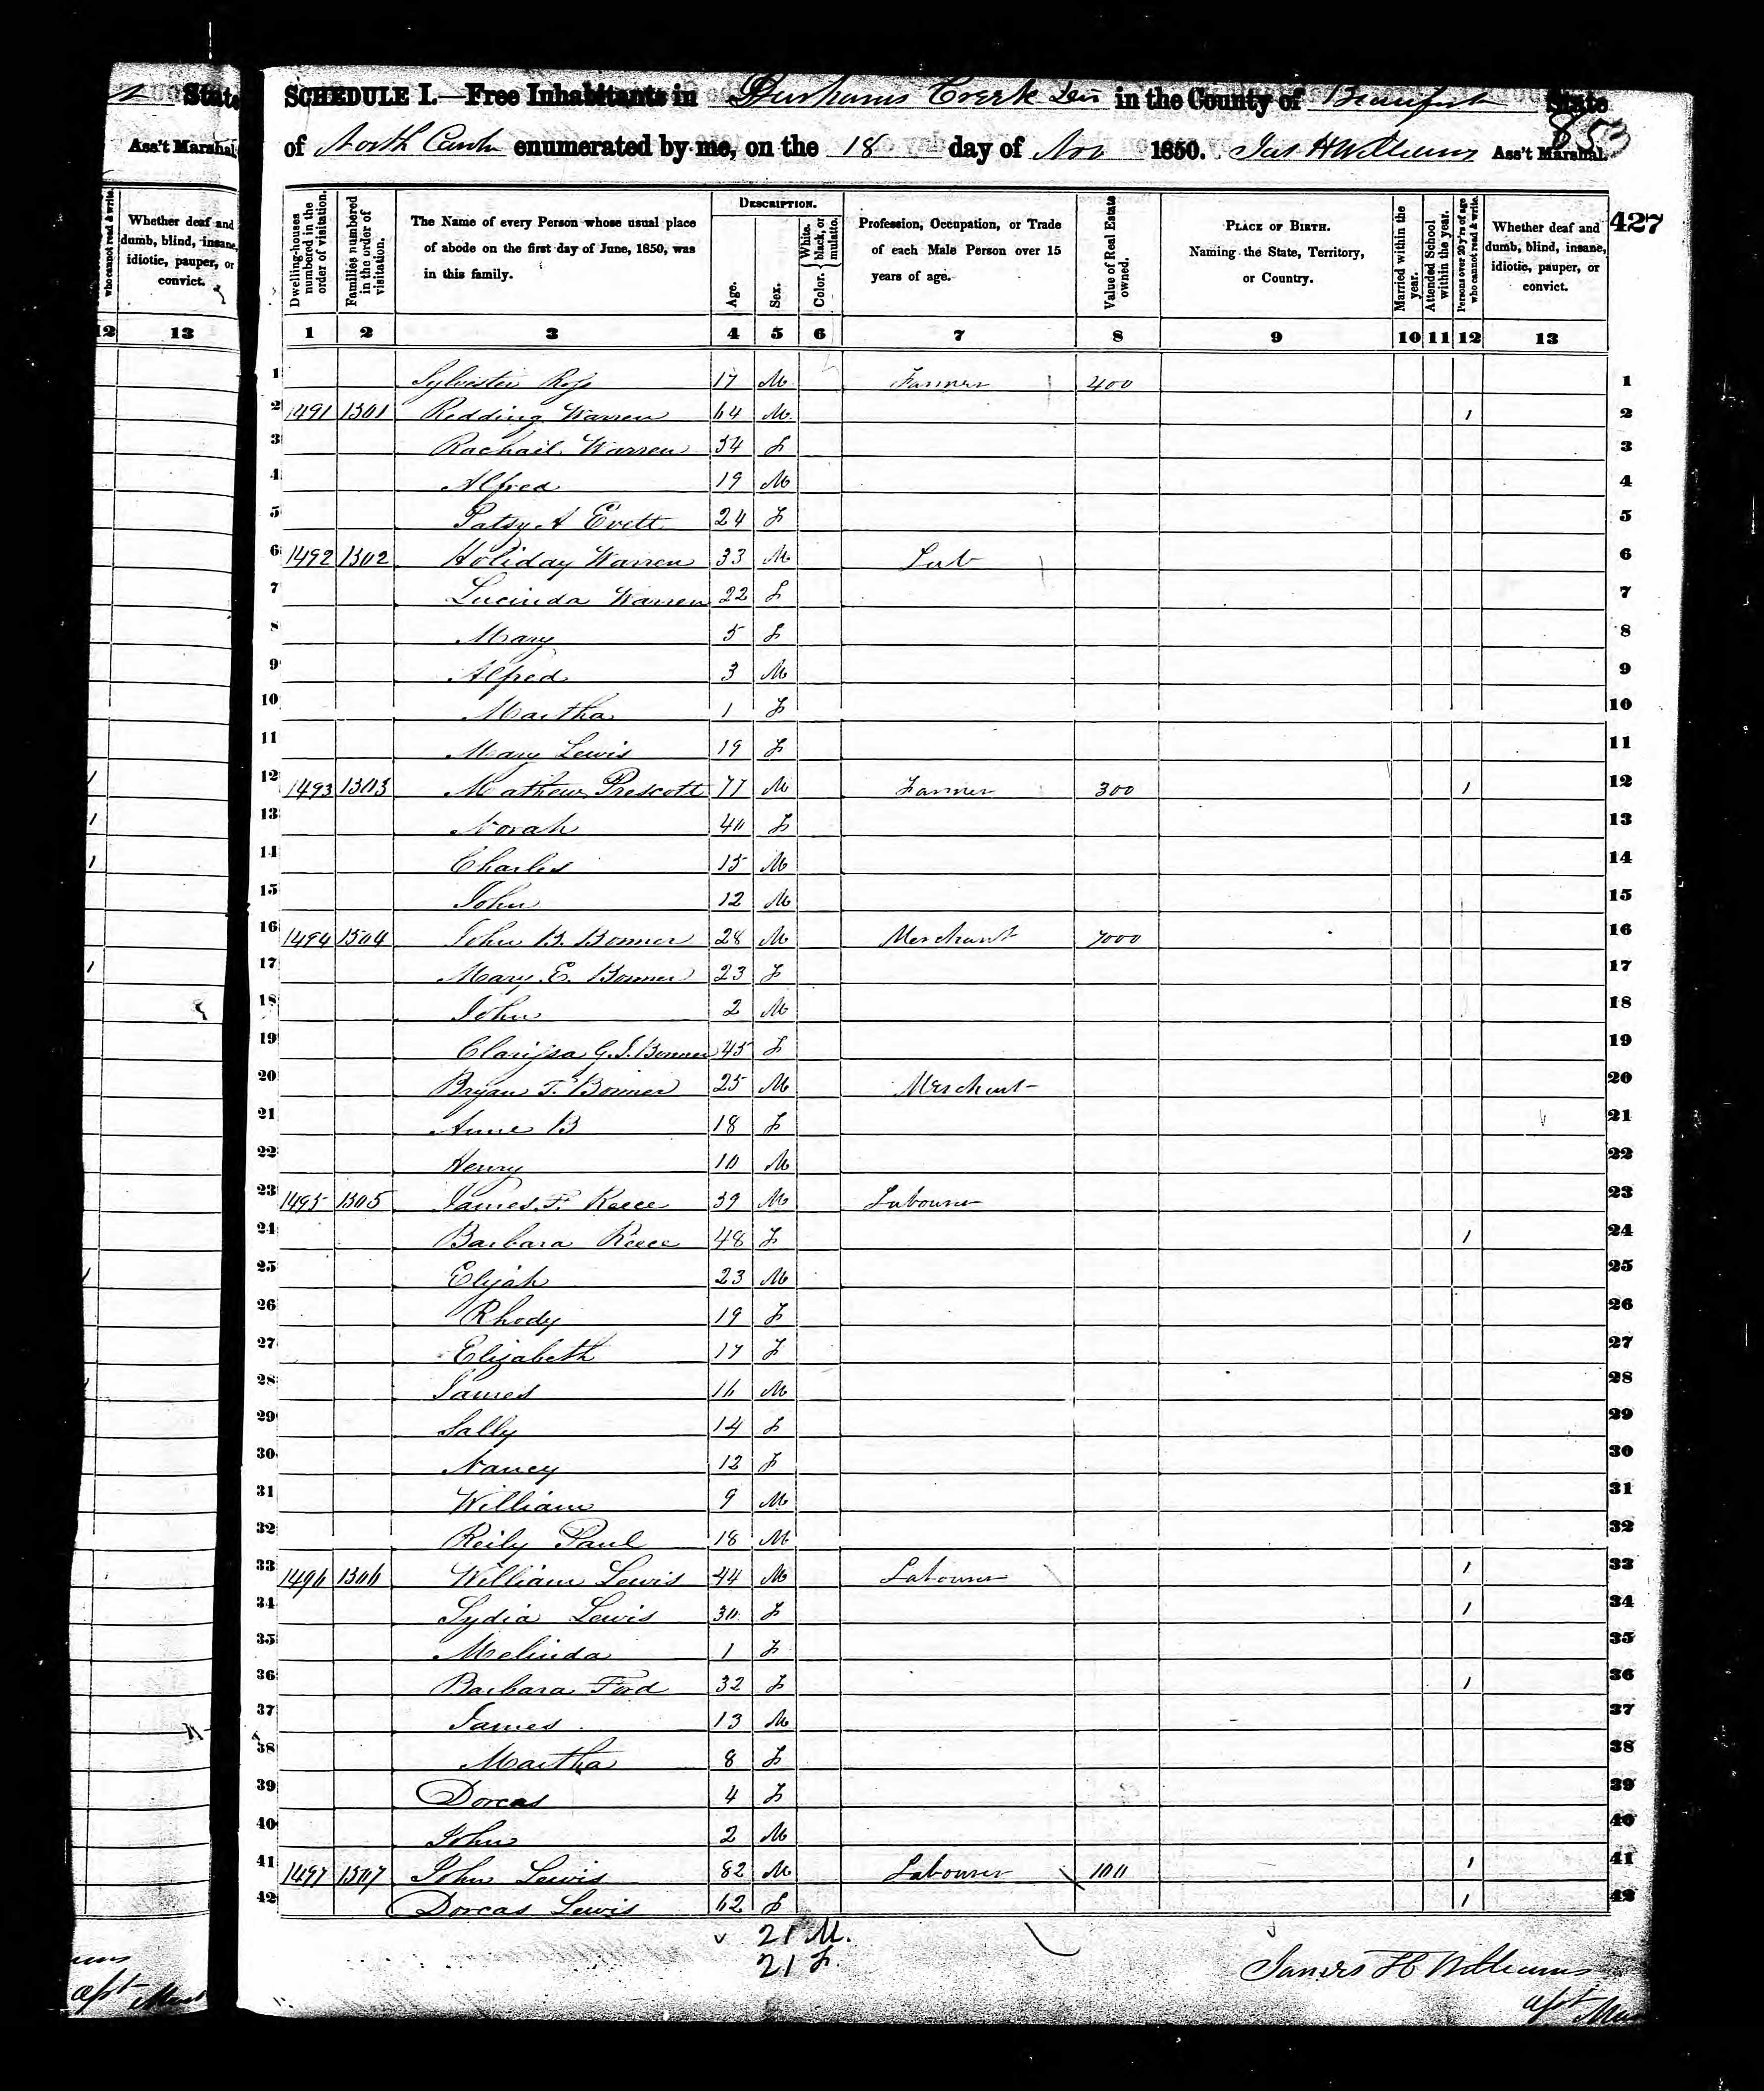 State
Ass't Marshal.
SCHEDULE I.—Free Inhabitants in Durhams Creek Dis in the County of Beaufort State
853
of North Carolina enumerated by me, on the 18 day of Nov 1850. Jas H Williams Ass't Marshal.
427
who cannot read & write.
Whether deaf and dumb, blind, insane, idiotic, pauper, or convict.
12 13
Dwelling-houses numbered in the order of visitation.
Families numbered in the order of visitation.
The Name of every Person whose usual place of abode on the first day of June, 1850, was in this family.
DESCRIPTION.
Age.
Sex.
Color. White, black, or mulatto.
Profession, Occupation, or Trade of each Male Person over 15 years of age.
Value of Real Estate owned.
PLACE OF BIRTH. Naming the State, Territory, or Country.
Married within the year.
Attended School within the year.
Persons over 20 y'rs of age who cannot read & write.
Whether deaf and dumb, blind, insane, idiotic, pauper, or convict.
1 2 3 4 5 6 7 8 9 10 11 12 13
1 Sylvester Ross 17 M Farmer 400 1
2 1491 1301 Redding Warren 64 M 1 2
3 Rachail Warren 54 f 3
4 Alfred 19 M 4
5 Patsy A Evett 24 f 5
6 1492 1302 Holiday Warren 33 M Lab 6
7 Lucinda Warren 22 f 7
8 Mary 5 f 8
9 Alfred 3 M 9
10 Martha 1 f 10
11 Mary Lewis 19 f 11
12 1493 1303 Mathew Prescott 77 M Farmer 300 1 12
13 Norah 40 f 13
14 Charles 15 M 14
15 John 12 M 15
16 1494 1304 John B. Bonner 28 M Merchant 7000 16
17 Mary E. Bonner 23 f 17
18 John 2 M 18
19 Clarissa G. S. Bonner 45 f 19
20 Bryan T. Bonner 25 M Merchant 20
21 Anne B 18 f 21
22 Henry 10 M 22
23 1495 1305 James F. Reece 39 M Labourer 23
24 Barbara Reece 48 f 1 24
25 Elijah 23 M 25
26 Rhody 19 f 26
27 Elizabeth 17 f 27
28 James 16 M 28
29 Sally 14 f 29
30 Nancy 12 f 30
31 William 9 M 31
32 Reily Paul 18 M 32
33 1496 1306 William Lewis 44 M Labourer 1 33
34 Lydia Lewis 30 f 1 34
35 Melinda 1 f 35
36 Barbara Ford 32 f 1 36
37 James 13 M 37
38 Martha 8 f 38
39 Dorcas 4 f 39
40 John 2 M 40
41 1497 1307 John Lewis 82 M Labourer 100 1 41
42 Dorcas Lewis 62 f 1 42
21 M.
21 f.
James H Williams
asst Mar
asst Mars